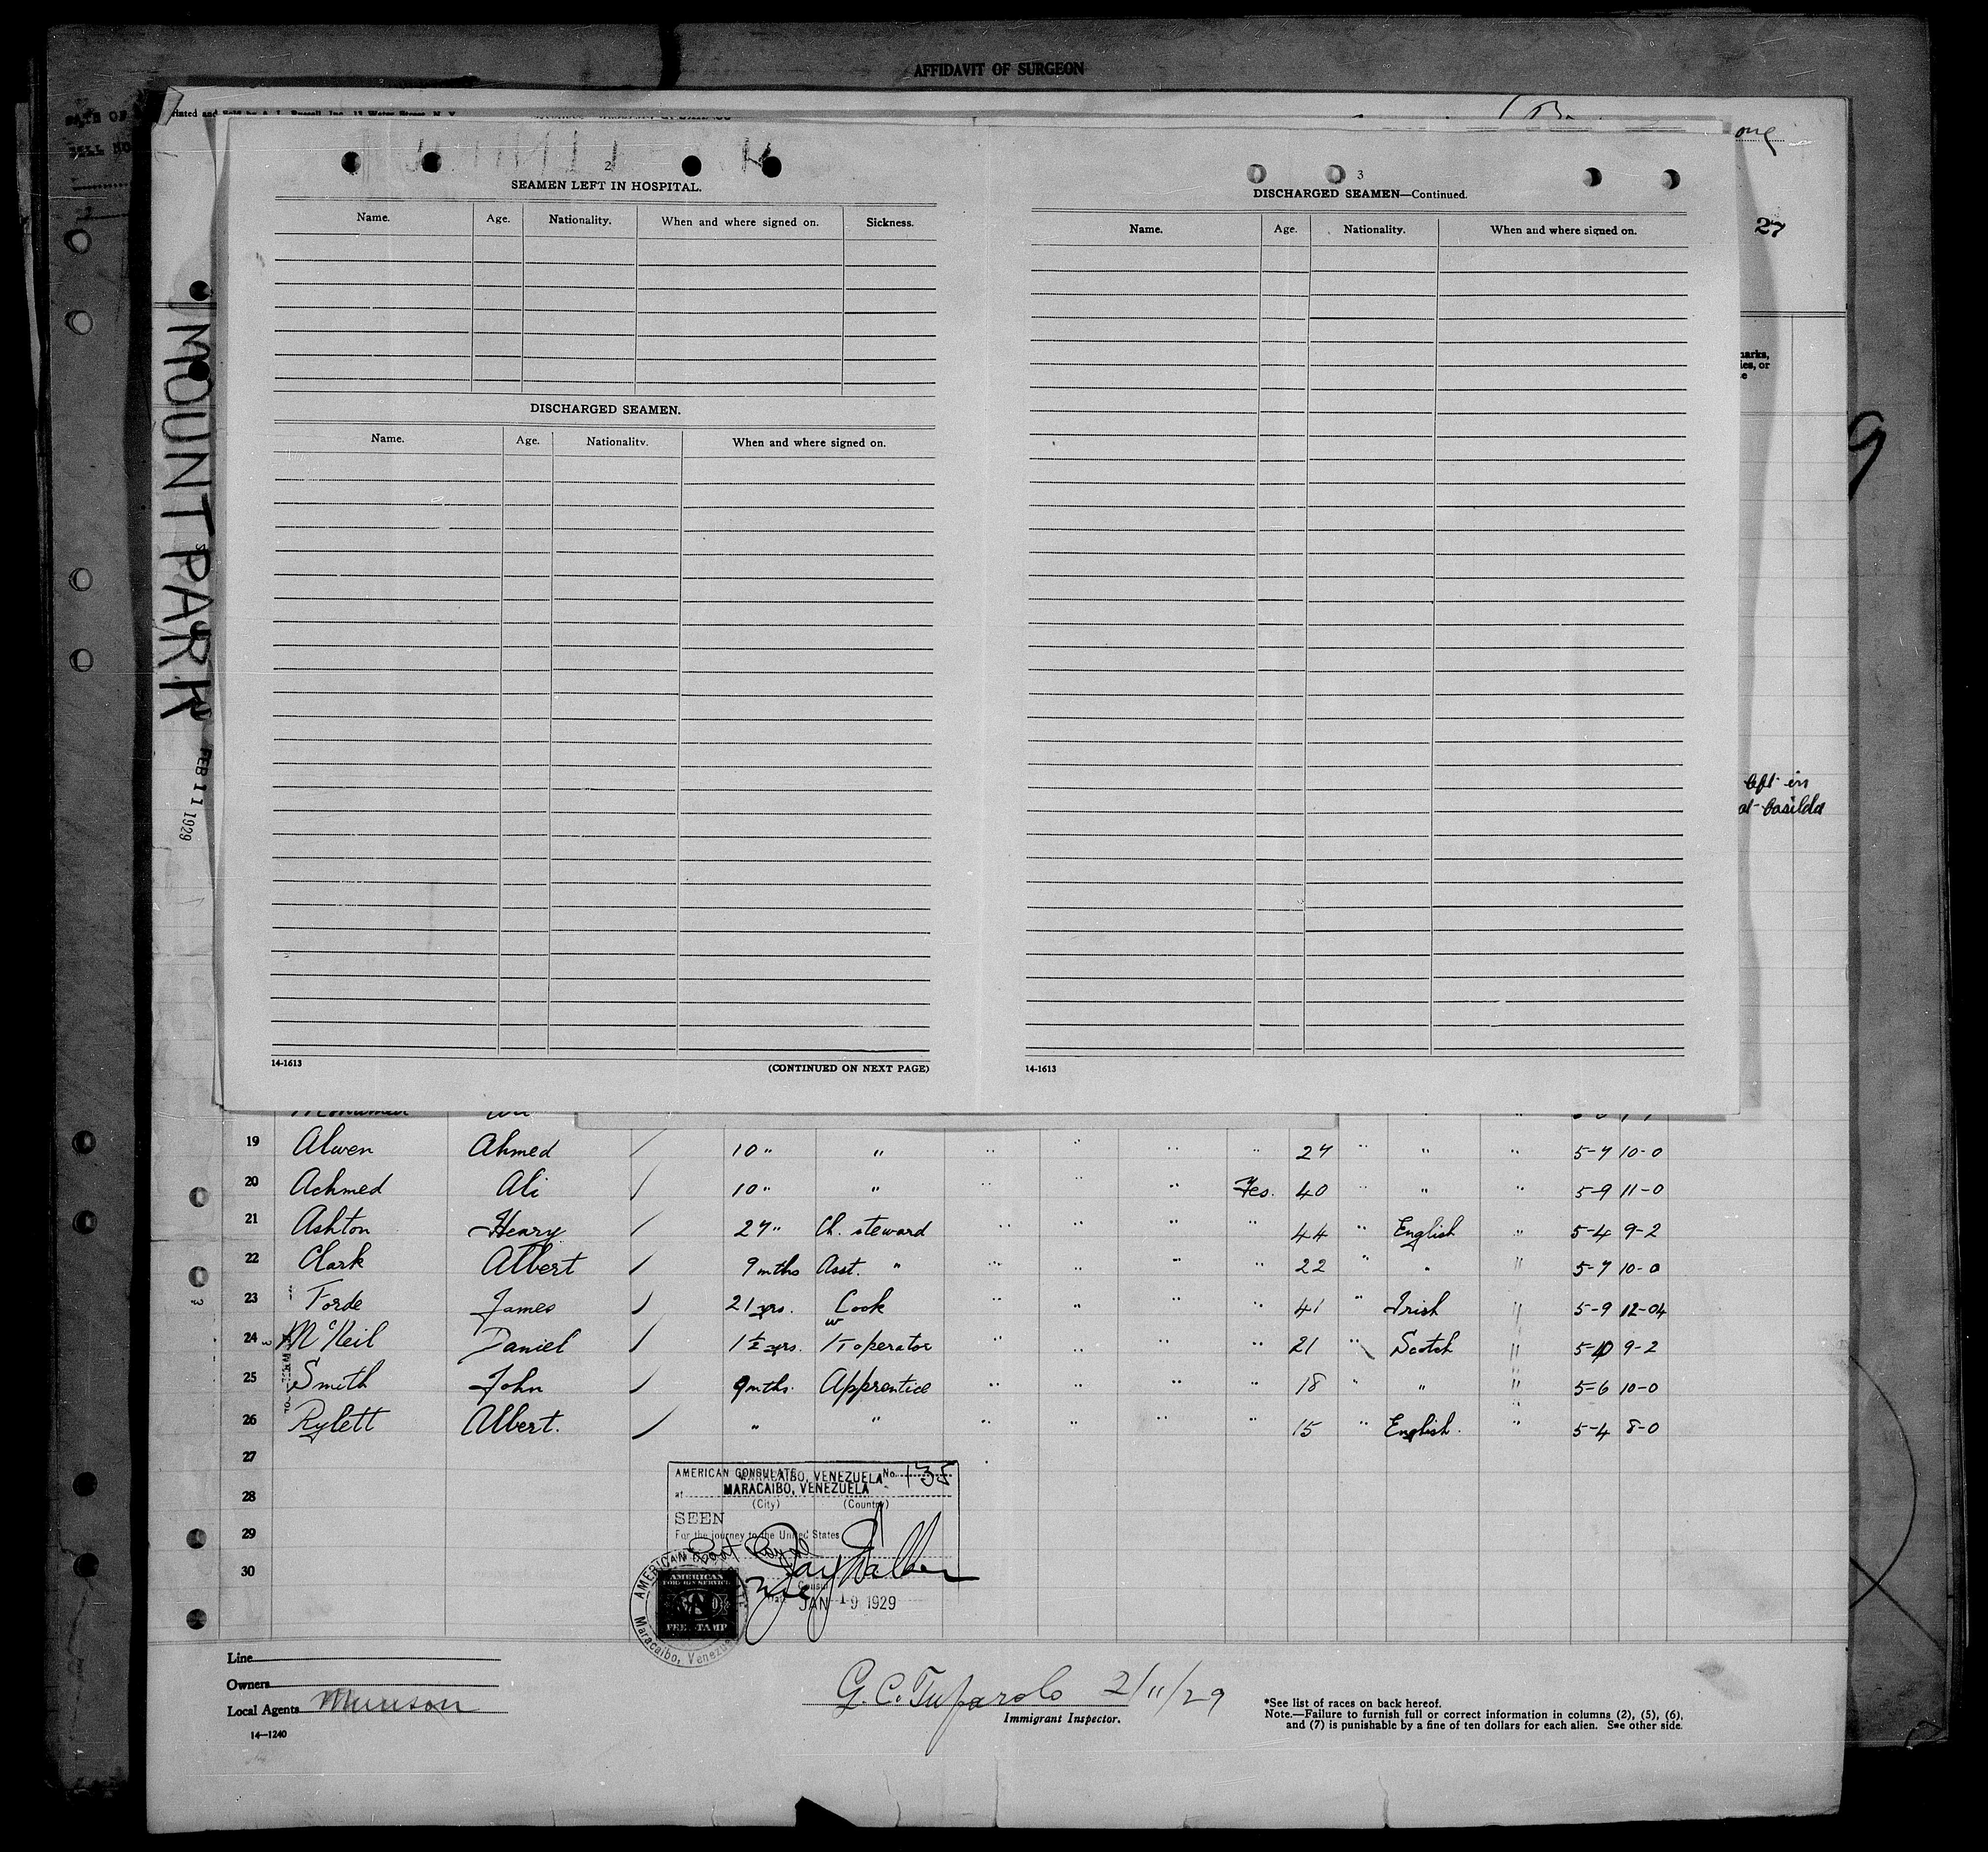 AFFIDAVIT OF SURGEON
Printed and Sold by A. L. Russell, Inc., 13 Water Street, N. Y.
27
MOUNT PARK
FEB 11 1929
2
SEAMEN LEFT IN HOSPITAL.
Name. Age. Nationality. When and where signed on. Sickness.
DISCHARGED SEAMEN.
Name. Age. Nationality. When and where signed on.
14-1613 (CONTINUED ON NEXT PAGE)
3
DISCHARGED SEAMEN—Continued.
Name. Age. Nationality. When and where signed on.
14-1613
9
left in
at Casilda
19 Alwen Ahmed 10 " " " " " " 27 " " " 5-7 10-0
20 Achmed Ali 10 " " " " " Yes. 40 " " " 5-9 11-0
21 Ashton Henry 27 " Ch. steward " " " " 44 " English " 5-4 9-2
22 Clark Albert 9 mths Asst. " " " " " 22 " " " 5-7 10-0
23 Forde James 21 yrs. Cook " " " " 41 " Irish " 5-9 12-04
24 McNeil Daniel 1½ yrs. W/T operator " " " " 21 " Scotch " 5-10 9-2
25 Smith John 9 mths. Apprentice " " " " 18 " " " 5-6 10-0
26 Rylett Albert. " " " " " " 15 " English. " 5-4 8-0
27
28
29
30
AMERICAN CONSULATE No. 135
at MARACAIBO, VENEZUELA
(City) (Country)
SEEN
For the journey to the United States
Consul
Date JAN 19 1929
AMERICAN FOREIGN SERVICE
FEE STAMP
Maracaibo, Venezuela
Line
Owners
Local Agents Munson
14—1240
G. C. Tuparolo 2/11/29
Immigrant Inspector.
*See list of races on back hereof.
Note.—Failure to furnish full or correct information in columns (2), (5), (6),
and (7) is punishable by a fine of ten dollars for each alien. See other side.